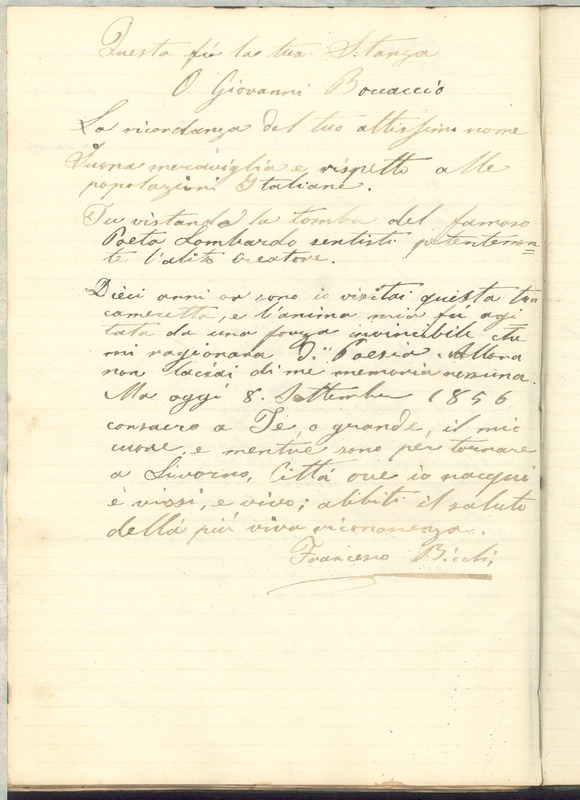 Questa fù la tua Stanza
O Giovanni Boccaccio
La ricordanza del tuo altissimo nome
Suona meraviglia e rispetto alle
popolazioni Italiane.
Tu visitando la tomba del famoso
Poeta Lombardo sentisti potentemen=
te l'alito Creatore.
Dieci anni or sono io visitai questa tua
cameretta, e l'anima mia fù agi
tata da una forza invincibile che
mi ragionava di Poesia. Allora
non lasciai di me memoria nessuna.
Ma oggi 8. Settembre 1856
consacro a Te, o grande, il mio
cuore, e mentre sono per tornare
a Livorno, Città ove io nacqui
è vissi, e vivo; abbiti il saluto
della più viva riconoscenza.
Francesco